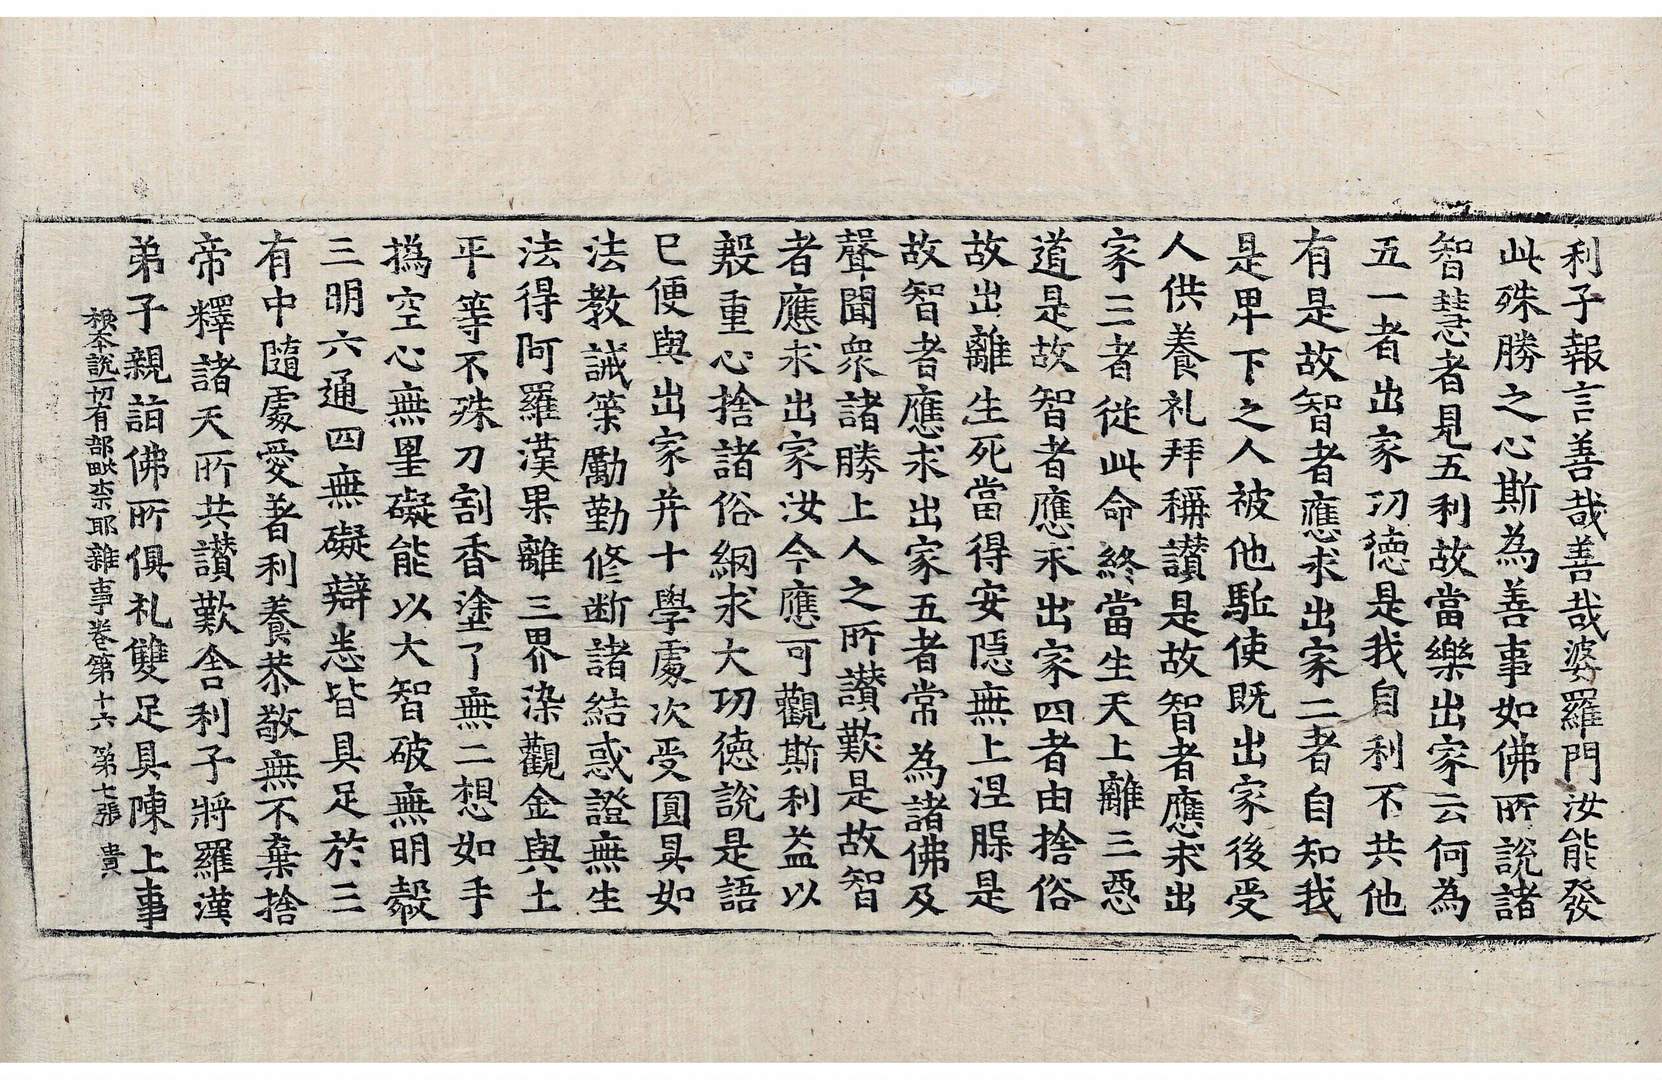 利子報言善哉善哉婆羅門汝能發
此殊勝之心斯為善事如佛所說諸
智慧者見五利故當樂出家云何為
五一者出家功德是我自利不共他
有是故智者應求出家二者自知我
是卑下之人被他駈使既出家後受
人供養礼拜稱讃是故智者應求出
家三者從此命終當生天上離三惡
道是故智者應求出家四者由捨俗
故出離生死當得安隱無上涅槃是
故智者應求出家五者常為諸佛及
聲聞衆諸勝上人之所讃歎是故智
者應求出家汝今應可觀斯利益以
殷重心捨諸俗網求大功德說是語
已便與出家并十學處次受圓具如
法教誡策勵勤修断諸結惑證無生
法得阿羅漢果離三界染觀金與土
平等不殊刀割香塗了無二想如手
撝空心無罣礙能以大智破無明㲉
三明六通四無礙辯悉皆具足於三
有中隨處愛著利養恭敬無不棄捨
帝釋諸天所共讃歎舎利子將羅漢
弟子親詣佛所俱礼雙足具陳上事
根本說一切有部毗柰耶雜事卷第十六 第七張 貴